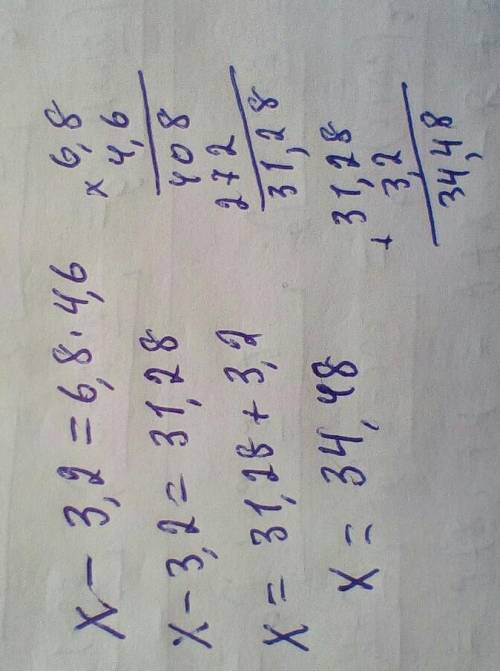 x - 3,2 = 6,8 · 4,6
x - 3,2 = 31,28
x = 31,28 + 3,2
x = 34,48
× 6,8
4,6
408
272
31,28
+ 31,28
3,2
34,48